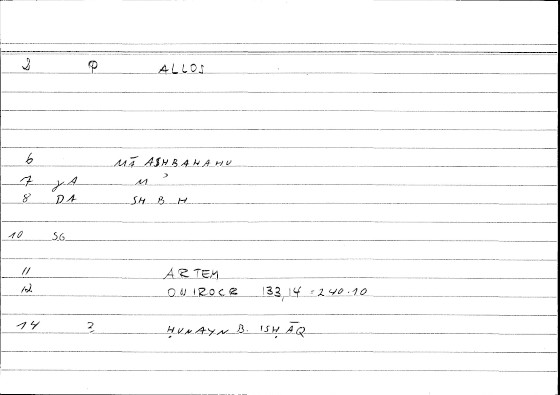 2 φ ALLOS
6 MĀ ASHBAHAHU
7 yA M ʾ
8 DA SH B H
10 SG
11 ARTEM
12 ONIROCR 133,14 = 240.10
14 2 ḤUNAYN B. ISḤĀQ